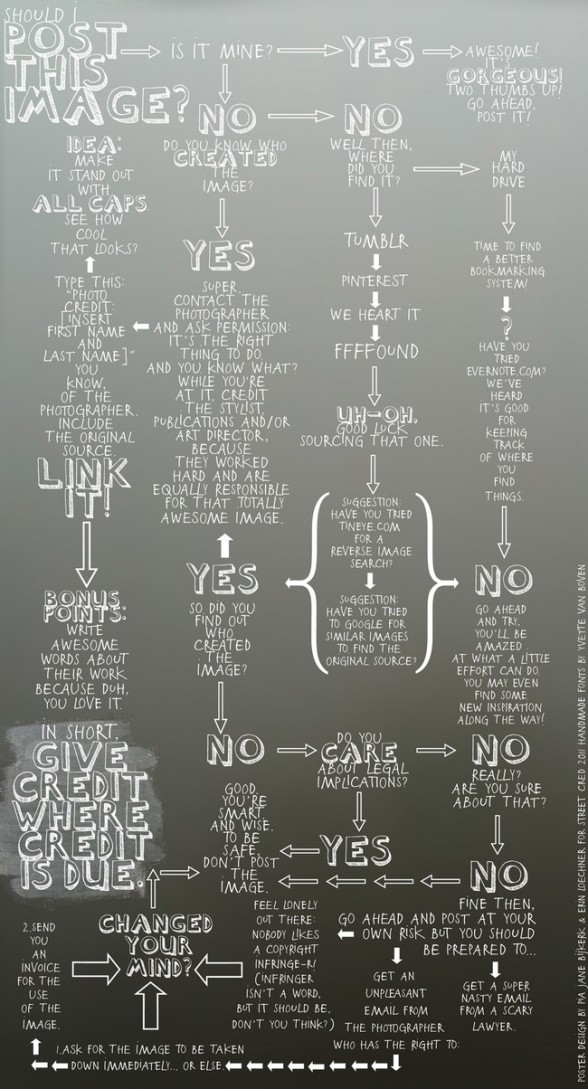 SHOULD I
POST
THIS
IMAGE?
IS IT MINE?
YES
AWESOME!
IT'S
GORGEOUS!
TWO THUMBS UP!
GO AHEAD,
POST IT!
NO
DO YOU KNOW WHO
CREATED
THE
IMAGE?
NO
WELL THEN,
WHERE
DID YOU
FIND IT?
MY
HARD
DRIVE
TIME TO FIND
A BETTER
BOOKMARKING
SYSTEM!
?
HAVE YOU
TRIED
EVERNOTE.COM?
WE'VE
HEARD
IT'S GOOD
FOR
KEEPING
TRACK
OF WHERE
YOU
FIND
THINGS.
TUMBLR
PINTEREST
WE HEART IT
FFFFOUND
UH-OH,
GOOD LUCK
SOURCING THAT ONE.
SUGGESTION:
HAVE YOU TRIED
TINEYE.COM
FOR A
REVERSE IMAGE
SEARCH?
SUGGESTION:
HAVE YOU TRIED
TO GOOGLE FOR
SIMILAR IMAGES
TO FIND THE
ORIGINAL SOURCE?
YES
SUPER.
CONTACT THE
PHOTOGRAPHER
AND ASK PERMISSION:
IT'S THE RIGHT
THING TO DO.
AND YOU KNOW WHAT?
WHILE YOU'RE
AT IT, CREDIT
THE STYLIST,
PUBLICATIONS AND/OR
ART DIRECTOR,
BECAUSE
THEY WORKED
HARD AND ARE
EQUALLY RESPONSIBLE
FOR THAT TOTALLY
AWESOME IMAGE.
IDEA:
MAKE
IT STAND OUT
WITH
ALL CAPS.
SEE HOW
COOL
THAT LOOKS?
TYPE THIS:
"PHOTO
CREDIT:
[INSERT
FIRST NAME
AND
LAST NAME]"
YOU
KNOW,
OF THE
PHOTOGRAPHER.
INCLUDE
THE ORIGINAL
SOURCE.
LINK
IT!
BONUS
POINTS:
WRITE
AWESOME
WORDS ABOUT
THEIR WORK
BECAUSE DUH,
YOU LOVE IT.
IN SHORT,
GIVE
CREDIT
WHERE
CREDIT
IS DUE.
YES
SO DID YOU
FIND OUT
WHO
CREATED
THE
IMAGE?
NO
GO AHEAD
AND TRY.
YOU'LL BE
AMAZED
AT WHAT A LITTLE
EFFORT CAN DO.
YOU MAY EVEN
FIND SOME
NEW INSPIRATION
ALONG THE WAY!
NO
DO YOU
CARE
ABOUT LEGAL
IMPLICATIONS?
NO
REALLY?
ARE YOU SURE
ABOUT THAT?
YES
GOOD.
YOU'RE
SMART
AND WISE.
TO BE
SAFE,
DON'T POST
THE
IMAGE.
NO
FINE THEN,
GO AHEAD AND POST AT YOUR
OWN RISK BUT YOU SHOULD
BE PREPARED TO...
GET A SUPER
NASTY EMAIL
FROM A SCARY
LAWYER.
GET AN
UNPLEASANT
EMAIL FROM
THE PHOTOGRAPHER
WHO HAS THE RIGHT TO:
FEEL LONELY
OUT THERE:
NOBODY LIKES
A COPYRIGHT
INFRINGE-R!
(INFRINGER
ISN'T A WORD,
BUT IT SHOULD BE,
DON'T YOU THINK?)
1.ASK FOR THE IMAGE TO BE TAKEN
DOWN IMMEDIATELY... OR ELSE
2.SEND
YOU
AN
INVOICE
FOR THE
USE
OF THE
IMAGE.
CHANGED
YOUR
MIND?
POSTER DESIGN BY PIA JANE BIJKERK & ERIN LOECHNER FOR STREET CRED 2011 HANDMADE FONTS BY YVETTE VAN BOVEN